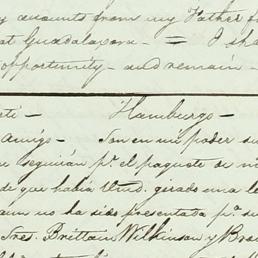 y amounts from my Father f
at Guadalaxara - = I sha
opportunity - and remain -
eté - Hamburgo -
Amigo - Son en mi poder su
e seguirán pr. el paquete de
de que habia Vmd. girado una le
aun no ha sido presentada pa. su
Sres. Brittain, Wilkinson y Bro